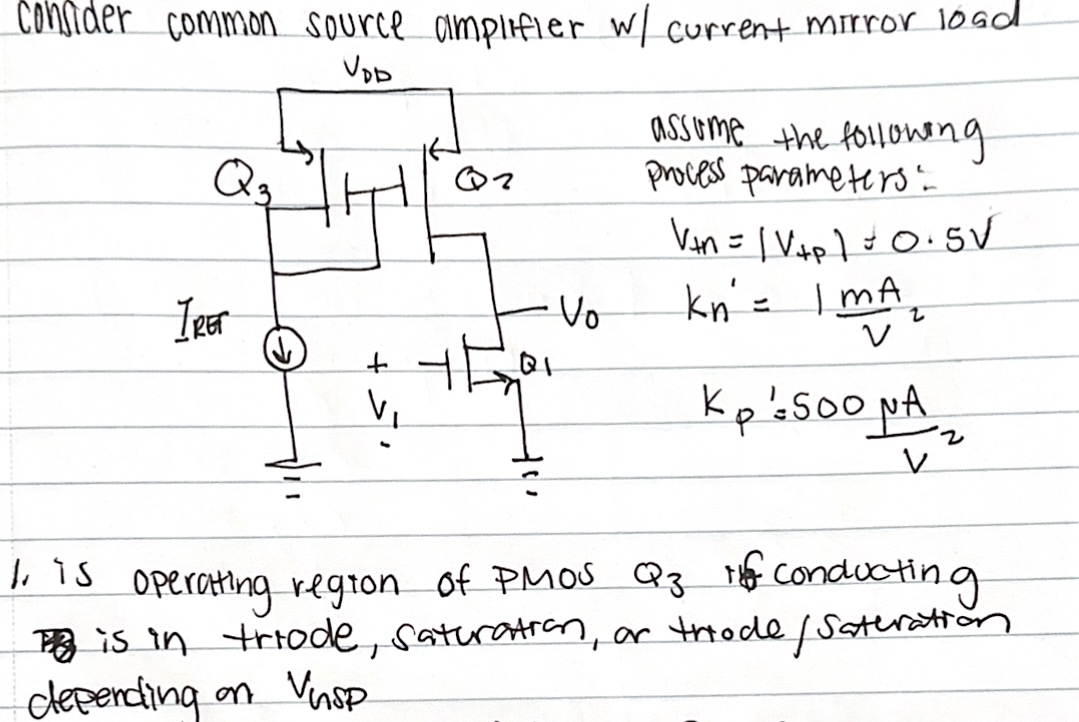 consider common source amplifier w/ current mirror load
VDD
assume the following
process parameters:
Q3
Q2
Vtn = |Vtp| = 0.5V
IREF
Vo
kn' = 1 mA/V²
+
Q1
Vi
-
Kp' = 500 μA/V²
1. is operating region of PMOS Q3 if conducting
is in triode, saturation, or triode/saturation
depending on